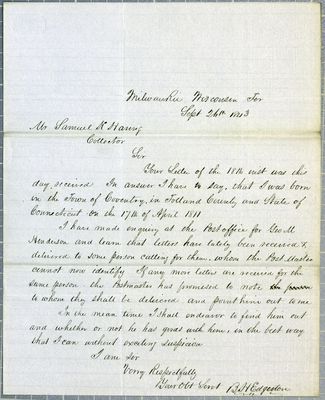 Milwaukie Wisconsin Ter
Sept 26th 1843
Mr Samuel K Haring
Collector
Sir
Your Letter of the 18th inst was this
day received In answer I have to say, that I was born
in the Town of Coventry, in Tolland County and State of
Connecticut on the 17th of April 1811
I have made enquiry at the Post office for Geo M
Henderson and learn that letters have lately been received &
delivered to some person calling for them, whom the Post Master
cannot now identify If any more letters are received for the
same person the Postmaster has promised to note the person
to whom they shall be delivered and point him out to me
In the mean time I shall endeavor to find him out
and whether or not he has goods with him, in the best way
that I can without exciting suspicion
I am Sir
Verry Respectfully
Your Obt Servt B H Edgerton